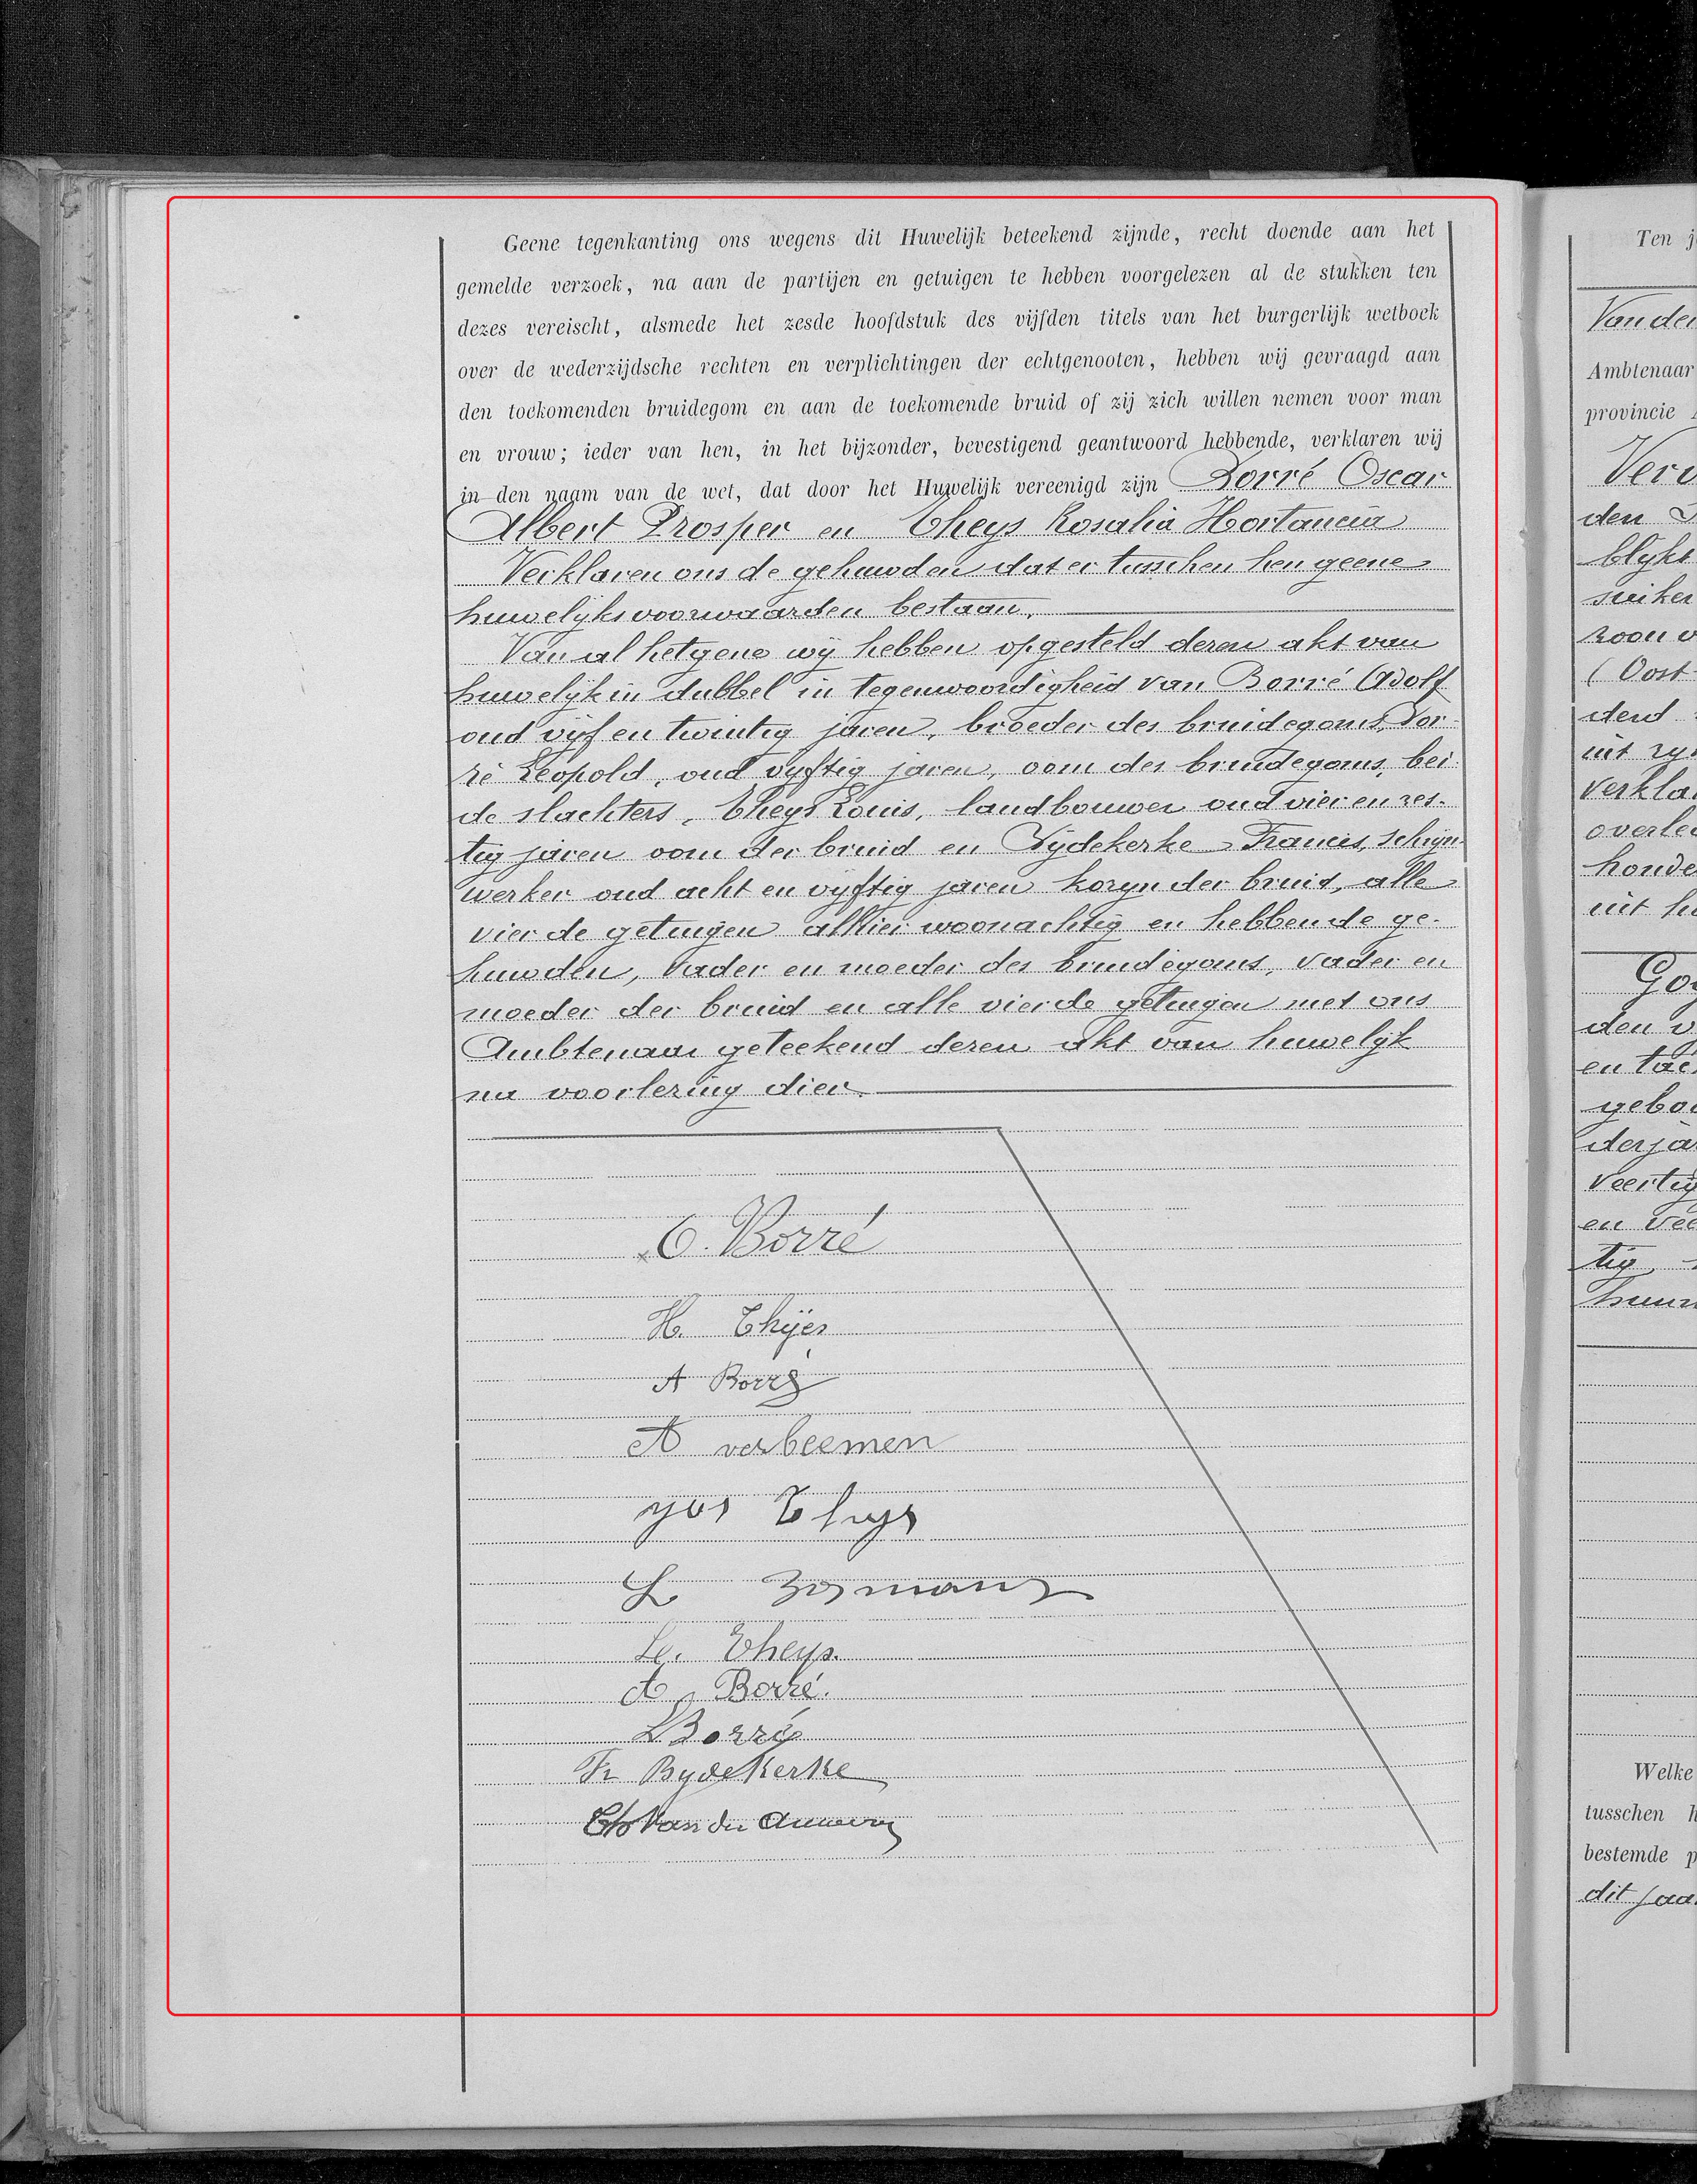 Geene tegenkanting ons wegens dit Huwelijk beteekend zijnde, recht doende aan het
gemelde verzoek, na aan de partijen en getuigen te hebben voorgelezen al de stukken ten
dezes vereischt, alsmede het zesde hoofdstuk des vijfden titels van het burgerlijk wetboek
over de wederzijdsche rechten en verplichtingen der echtgenooten, hebben wij gevraagd aan
den toekomenden bruidegom en aan de toekomende bruid of zij zich willen nemen voor man
en vrouw; ieder van hen, in het bijzonder, bevestigend geantwoord hebbende, verklaren wij
in den naam van de wet, dat door het Huwelijk vereenigd zijn Borré Oscar
Albert Prosper en Theys Rosalia Hortancia
Verklaren ons de gehuwden dat er tusschen hen geene
huwelijksvoorwaarden bestaan.
Van al hetgene wij hebben opgesteld dezen akt van
huwelijk in dubbel in tegenwoordigheid van Borré Adolf
oud vijf en twintig jaren, broeder des bruidegoms, Bor-
ré Leopold, oud vijftig jaren, oom des bruidegoms, bei-
de slachters, Theys Louis, landbouwer oud vier en zes-
tig jaren oom der bruid en Bijdekerke Francis, schrijn-
werker oud acht en vijftig jaren kozijn der bruid, alle
vier de getuigen alhier woonachtig en hebben de ge-
huwden, vader en moeder des bruidegoms, vader en
moeder der bruid en alle vier de getuigen met ons
Ambtenaar geteekend dezen akt van huwelijk
na voorlezing dier.
O. Borré
H. Thijes
A Borré
A verbeemen
jos Thys
L Bosmans
Le. Theys.
A Borré.
L Borré
Fr Bydekerke
Van der Auwera
Ten j
Vanden
Ambtenaar
provincie
Verv
den
blijkt
suiker
zoon v
(Oost
derd
uit zijn
verkla
overle
honde
uit hu
Goo
den v
en tac
geboo
derja
veertig
en vee
tig
huur
Welke
tusschen h
bestemde p
dit jaa